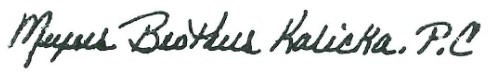 Meyers Brothers Kalicka, P.C